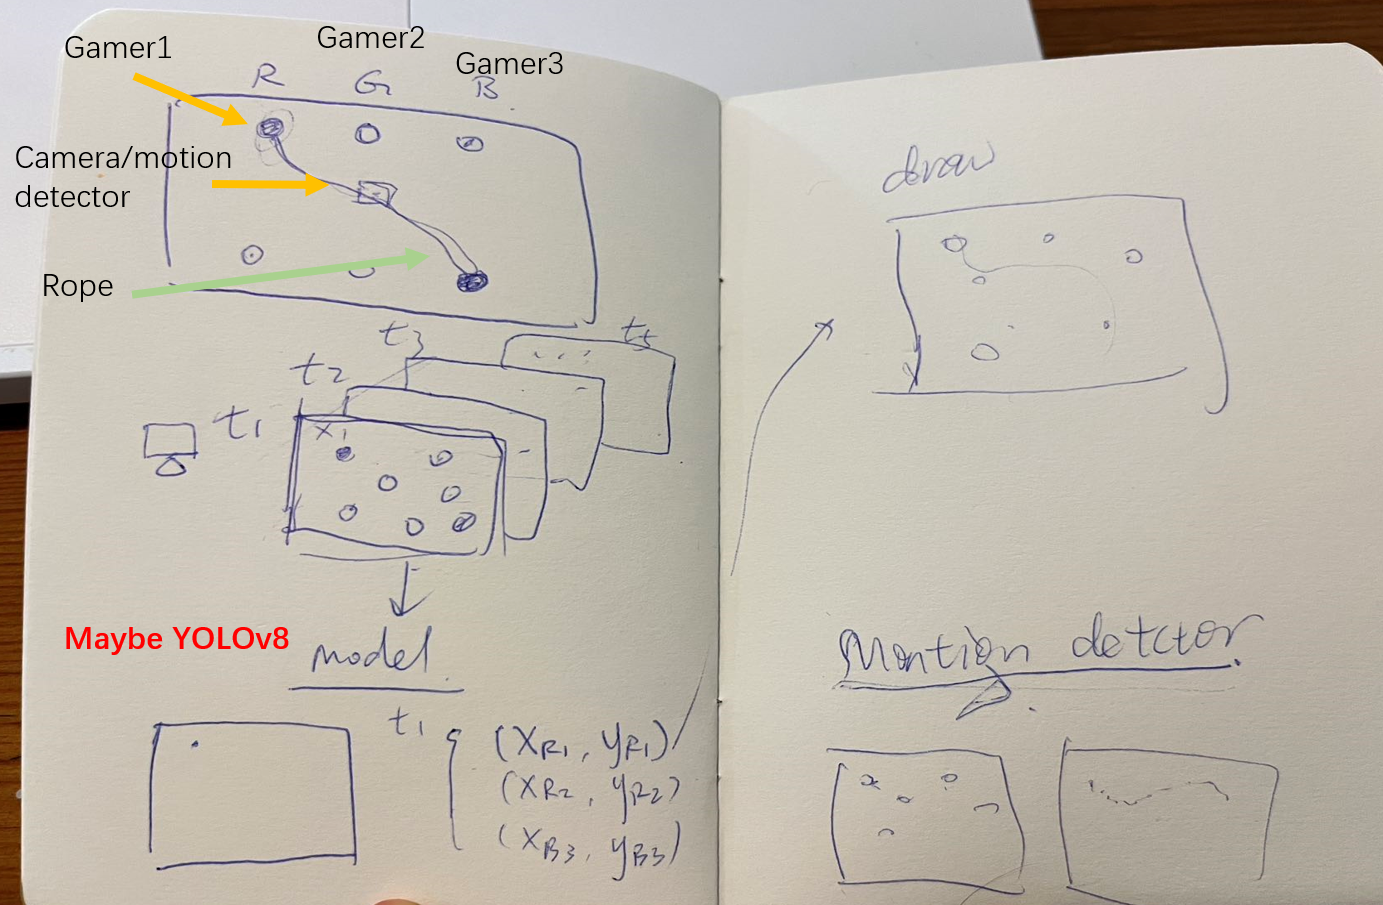 Gamer1
Gamer2
Gamer3
R G B
Camera/motion
detector
Rope
t1
t2
t3
t5
x1
Maybe YOLOv8
model
t1
(xR1, yR1)
(xR2, yR2)
(xB3, yB3)
draw
Montion detctor